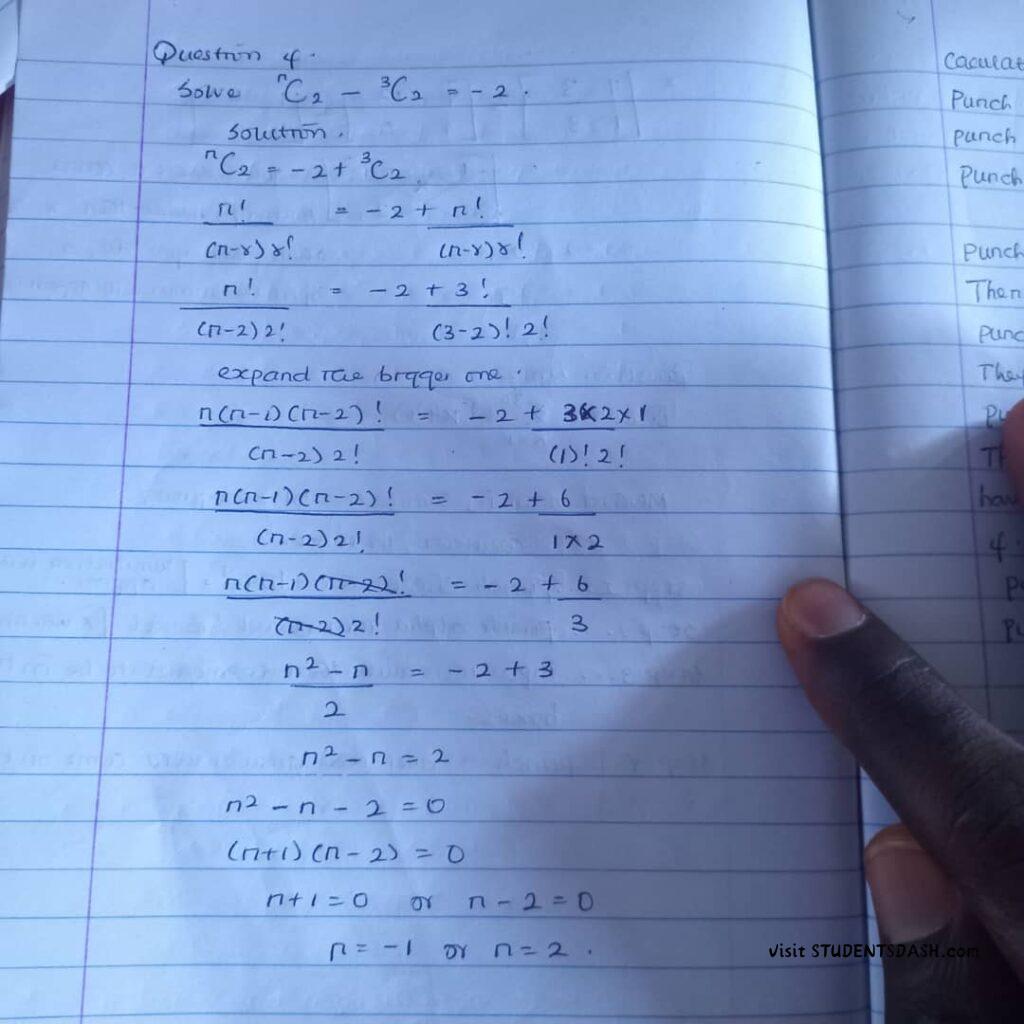 Question 4.
Solve ⁿC₂ - ³C₂ = -2.
Solution.
ⁿC₂ = -2 + ³C₂
n! = -2 + n!
(n-r)r! (n-r)r!
n! = -2 + 3!
(n-2)2! (3-2)!2!
expand the bigger one.
n(n-1)(n-2)! = -2 + 3x2x1
(n-2)2! (1)!2!
n(n-1)(n-2)! = -2 + 6
(n-2)2! 1x2
n(n-1)(n-2)! = -2 + 6
(n-2)2! 3
n² - n = -2 + 3
2
n² - n = 2
n² - n - 2 = 0
(n+1)(n-2) = 0
n+1=0 or n-2=0
n=-1 or n=2.
Caculat
Punch
punch
Punch
Punch
Then
punc
They
pu
T
hav
4.
p
pu
visit STUDENTSDASH.com